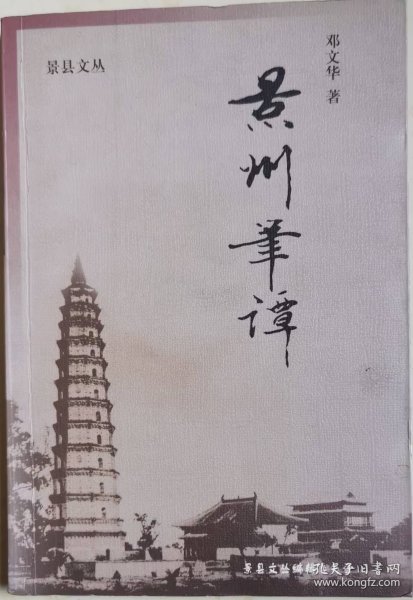 景县文丛
邓文华 著
景州筆谭
景县文丛编
孔夫子旧书网
www.kongfz.com